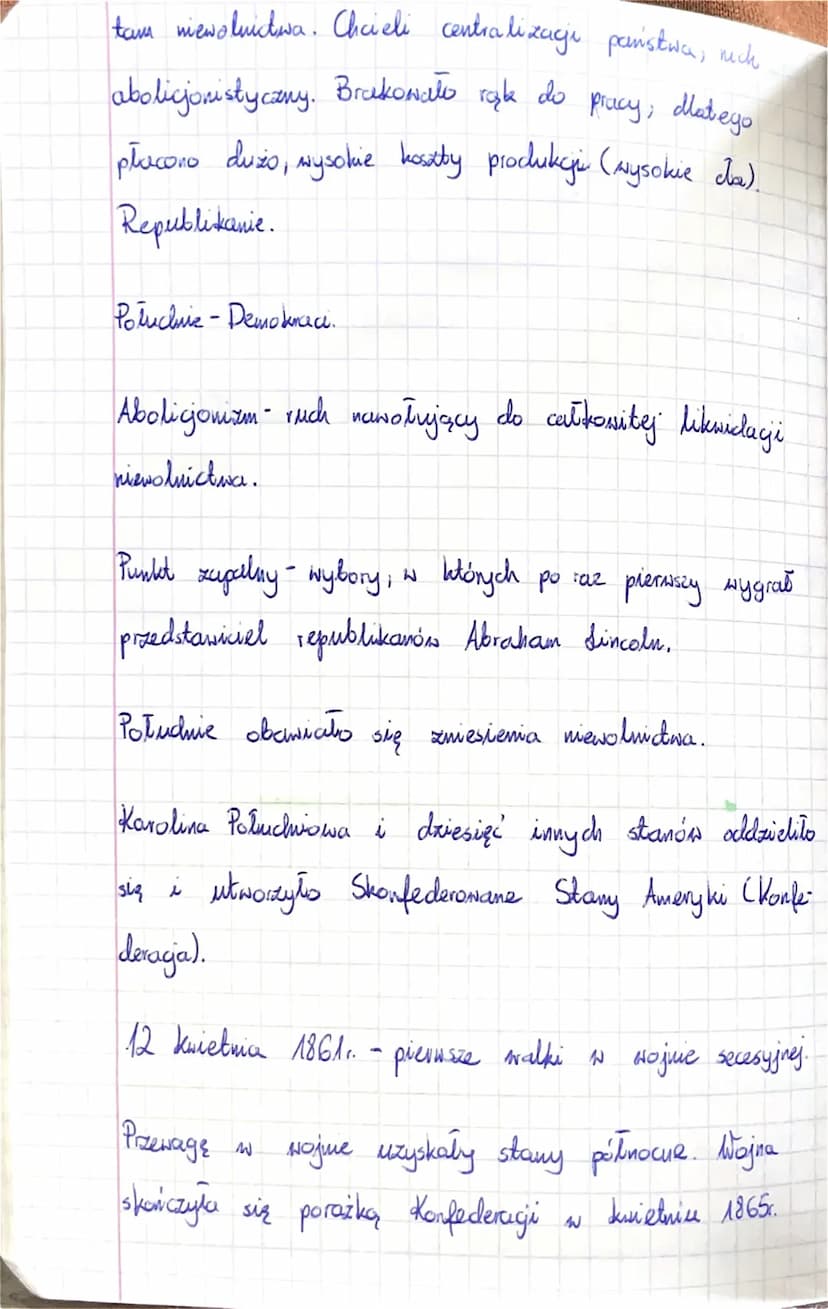 tam niewolnictwa. Chcieli centralizacji państwa, ruch
abolicjonistyczny. Brakowało rąk do pracy, dlatego
płacono dużo, wysokie koszty produkcji (wysokie cła).
Republikanie.
Południe - Demokraci.
Abolicjonizm - ruch nawołujący do całkowitej likwidacji
niewolnictwa.
Punkt zapalny - wybory, w których po raz pierwszy wygrał
przedstawiciel republikanów Abraham Lincoln.
Południe obawiało się zniesienia niewolnictwa.
Karolina Południowa i dziesięć innych stanów oddzieliło
się i utworzyło Skonfederowane Stany Ameryki (Konfe-
deracja).
12 kwietnia 1861r. - pierwsze walki w wojnie secesyjnej.
Przewagę w wojnie uzyskały stany północne. Wojna
skończyła się porażką Konfederacji w kwietniu 1865r.